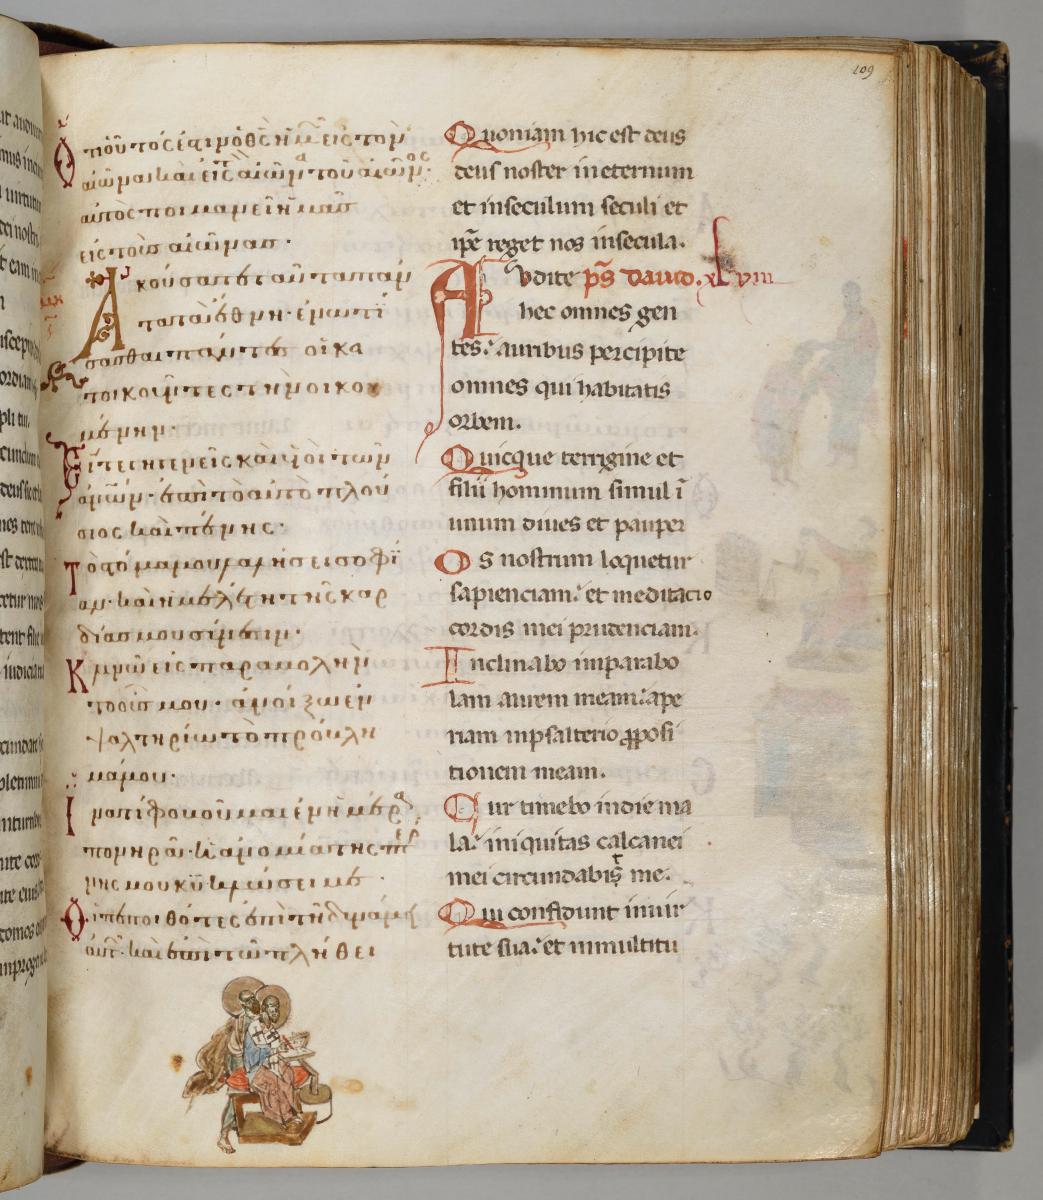 109
Ὅτι οὗτός ἐστιν ὁ θς ἡμῶν εἰς τὸν
αἰῶνα καὶ εἰς τὸν αἰῶνα τοῦ αἰῶνος·
αὐτὸς ποιμανεῖ ἡμᾶς
εἰς τοὺς αἰῶνας·
Ἀκούσατε ταῦτα πάν
τα τὰ ἔθνη· ἐνωτί
σασθαι πάντες οἱ κα
τοικοῦντες τὴν οἰκου
μένην·
τε γηγενεῖς καὶ υἱοὶ τῶν
ἀνων· ἐπὶ τὸ αὐτὸ πλού
σιος καὶ πένης·
Τὸ στόμα μου λαλήσει σοφί
αν· καὶ ἡ μελέτη τῆς καρ
δίας μου σύνεσιν·
Κλινῶ εἰς παραβολὴν
τὸ οὖς μου· ἀνοίξω ἐν
ψαλτηρίω τὸ πρόβλη
μα μου·
Ἵνα τί φοβοῦμαι ἐν ἡμέρα
πονηρᾶ· καὶ ἀνομία τῆς πτέρ
νης μου κυκλώσει με·
Οἱ πεποιθότες ἐπὶ τῆ δυνάμει
αὐτ καὶ ἐπὶ τῶ πλήθει
Quoniam hic est deus
deus noster ineternum
et inseculum seculi et
ipē reget nos insecula.
AVdite ps̄ dauid. xlviii
hec omnes gen
tes: auribus percipite
omnes qui habitatis
orbem.
Quicque terrigine et
filii hominum simul ī
unum diues et pauper
Os nostrum loquetur
sapienciam: et meditacio
cordis mei prudenciam.
Inclinabo inparabo
lam aurem meam: ape
riam inpsalterio ꝓposi
tionem meam.
Cur timebo indie ma
la: iniquitas calcanei
mei circundabit me.
Qui confidunt inuir
tute sua: et inmultitu